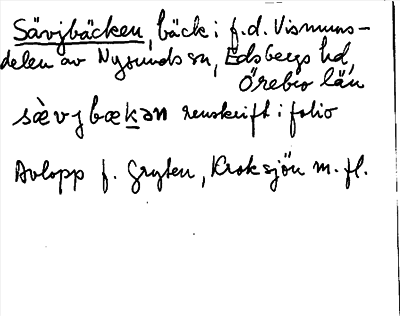 Sävjbäcken, bäck i f.d. Visnums-
delen av Nysunds sn, Edsbergs hd,
Örebro län
sæ̀vjbækən renskrift i folio
Avlopp f. Gryten, Kroksjön m.fl.